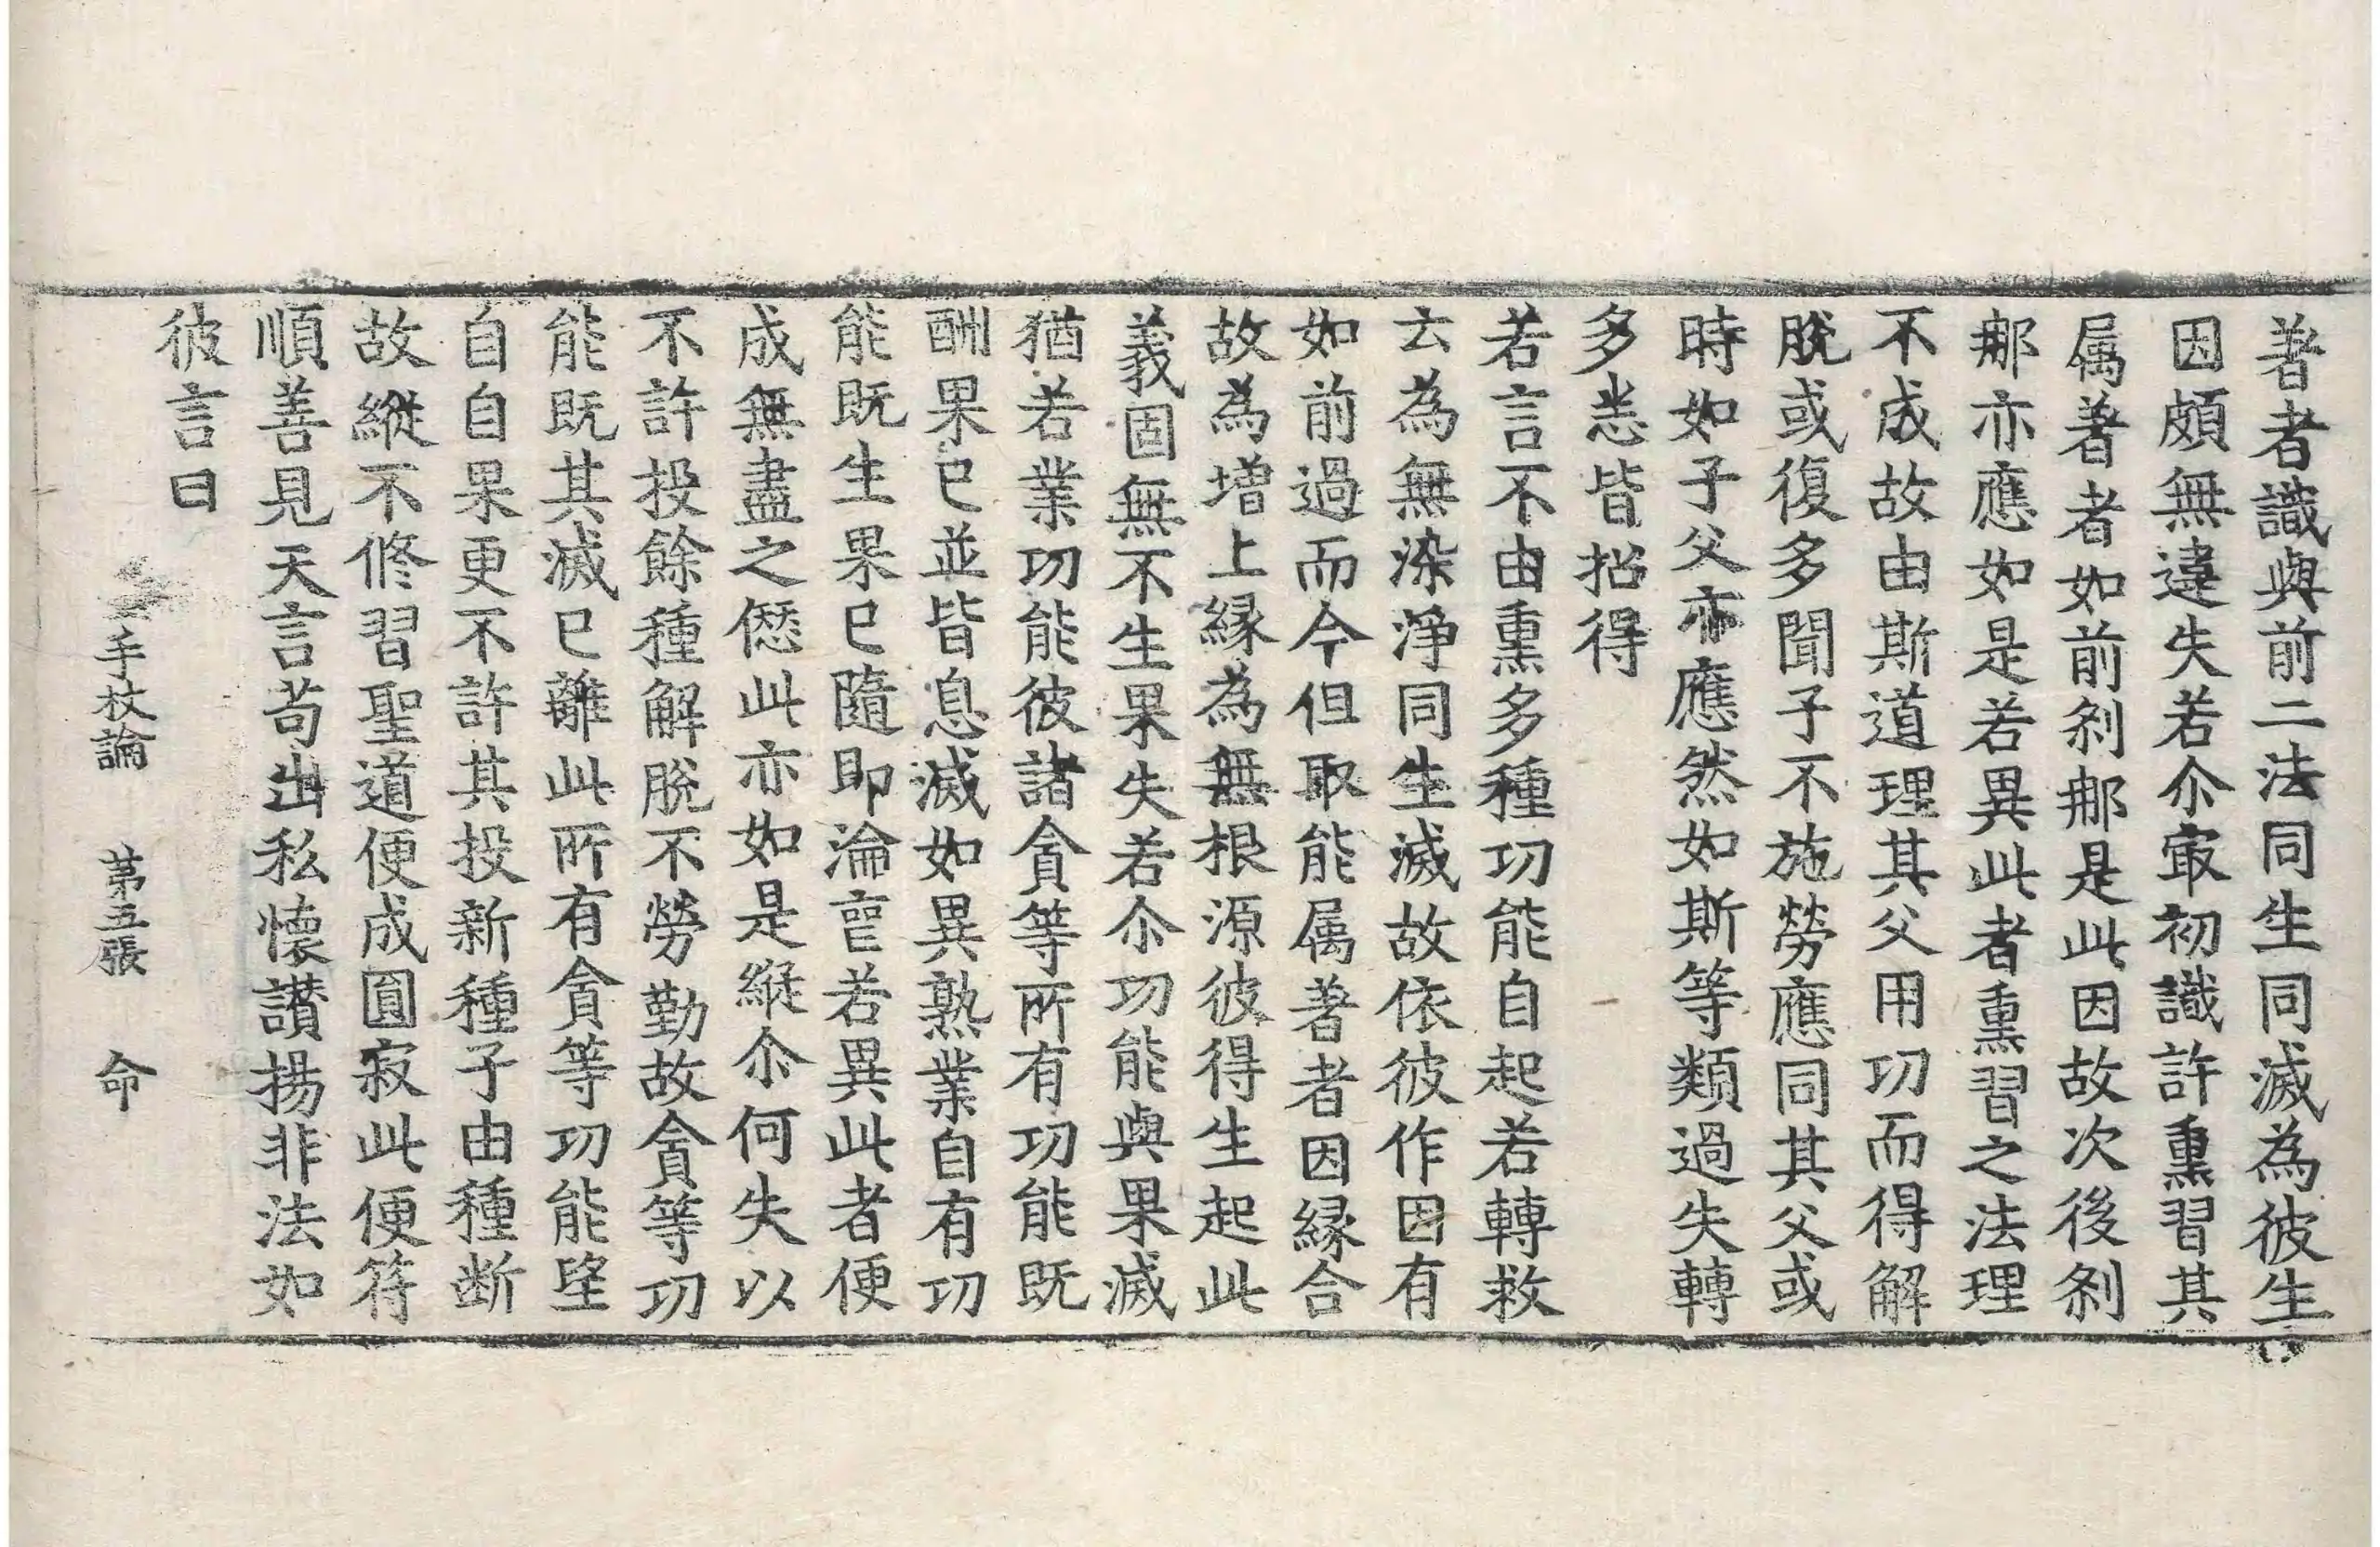 著者識與前二法同生同滅為彼生
因頗無違失若尒㝡初識許熏習其
属著者如前刹那是此因故次後刹
那亦應如是若異此者熏習之法理
不成故由斯道理其父用功而得解
脫或復多聞子不施勞應同其父或
時如子父亦應然如斯等類過失轉
多恙皆招得
若言不由熏多種功能自起若轉救
云為無染淨同生滅故依彼作因有
如前過而今但取能属著者因縁合
故為增上縁為無根源彼得生起此
義固無不生果失若尒功能與果滅
猶若業功能彼諸貪等所有功能既
酬果已並皆息滅如異熟業自有功
能既生果已隨即淪亡若異此者便
成無盡之㦣此亦如是縱尒何失以
不許投餘種解脫不勞勤故貪等功
能既其滅已離此所有貪等功能望
自自果更不許其投新種子由種断
故縱不修習聖道便成圓寂此便符
順善見天言苟出私懷讃揚非法如
彼言曰
手杖論 第五張 命